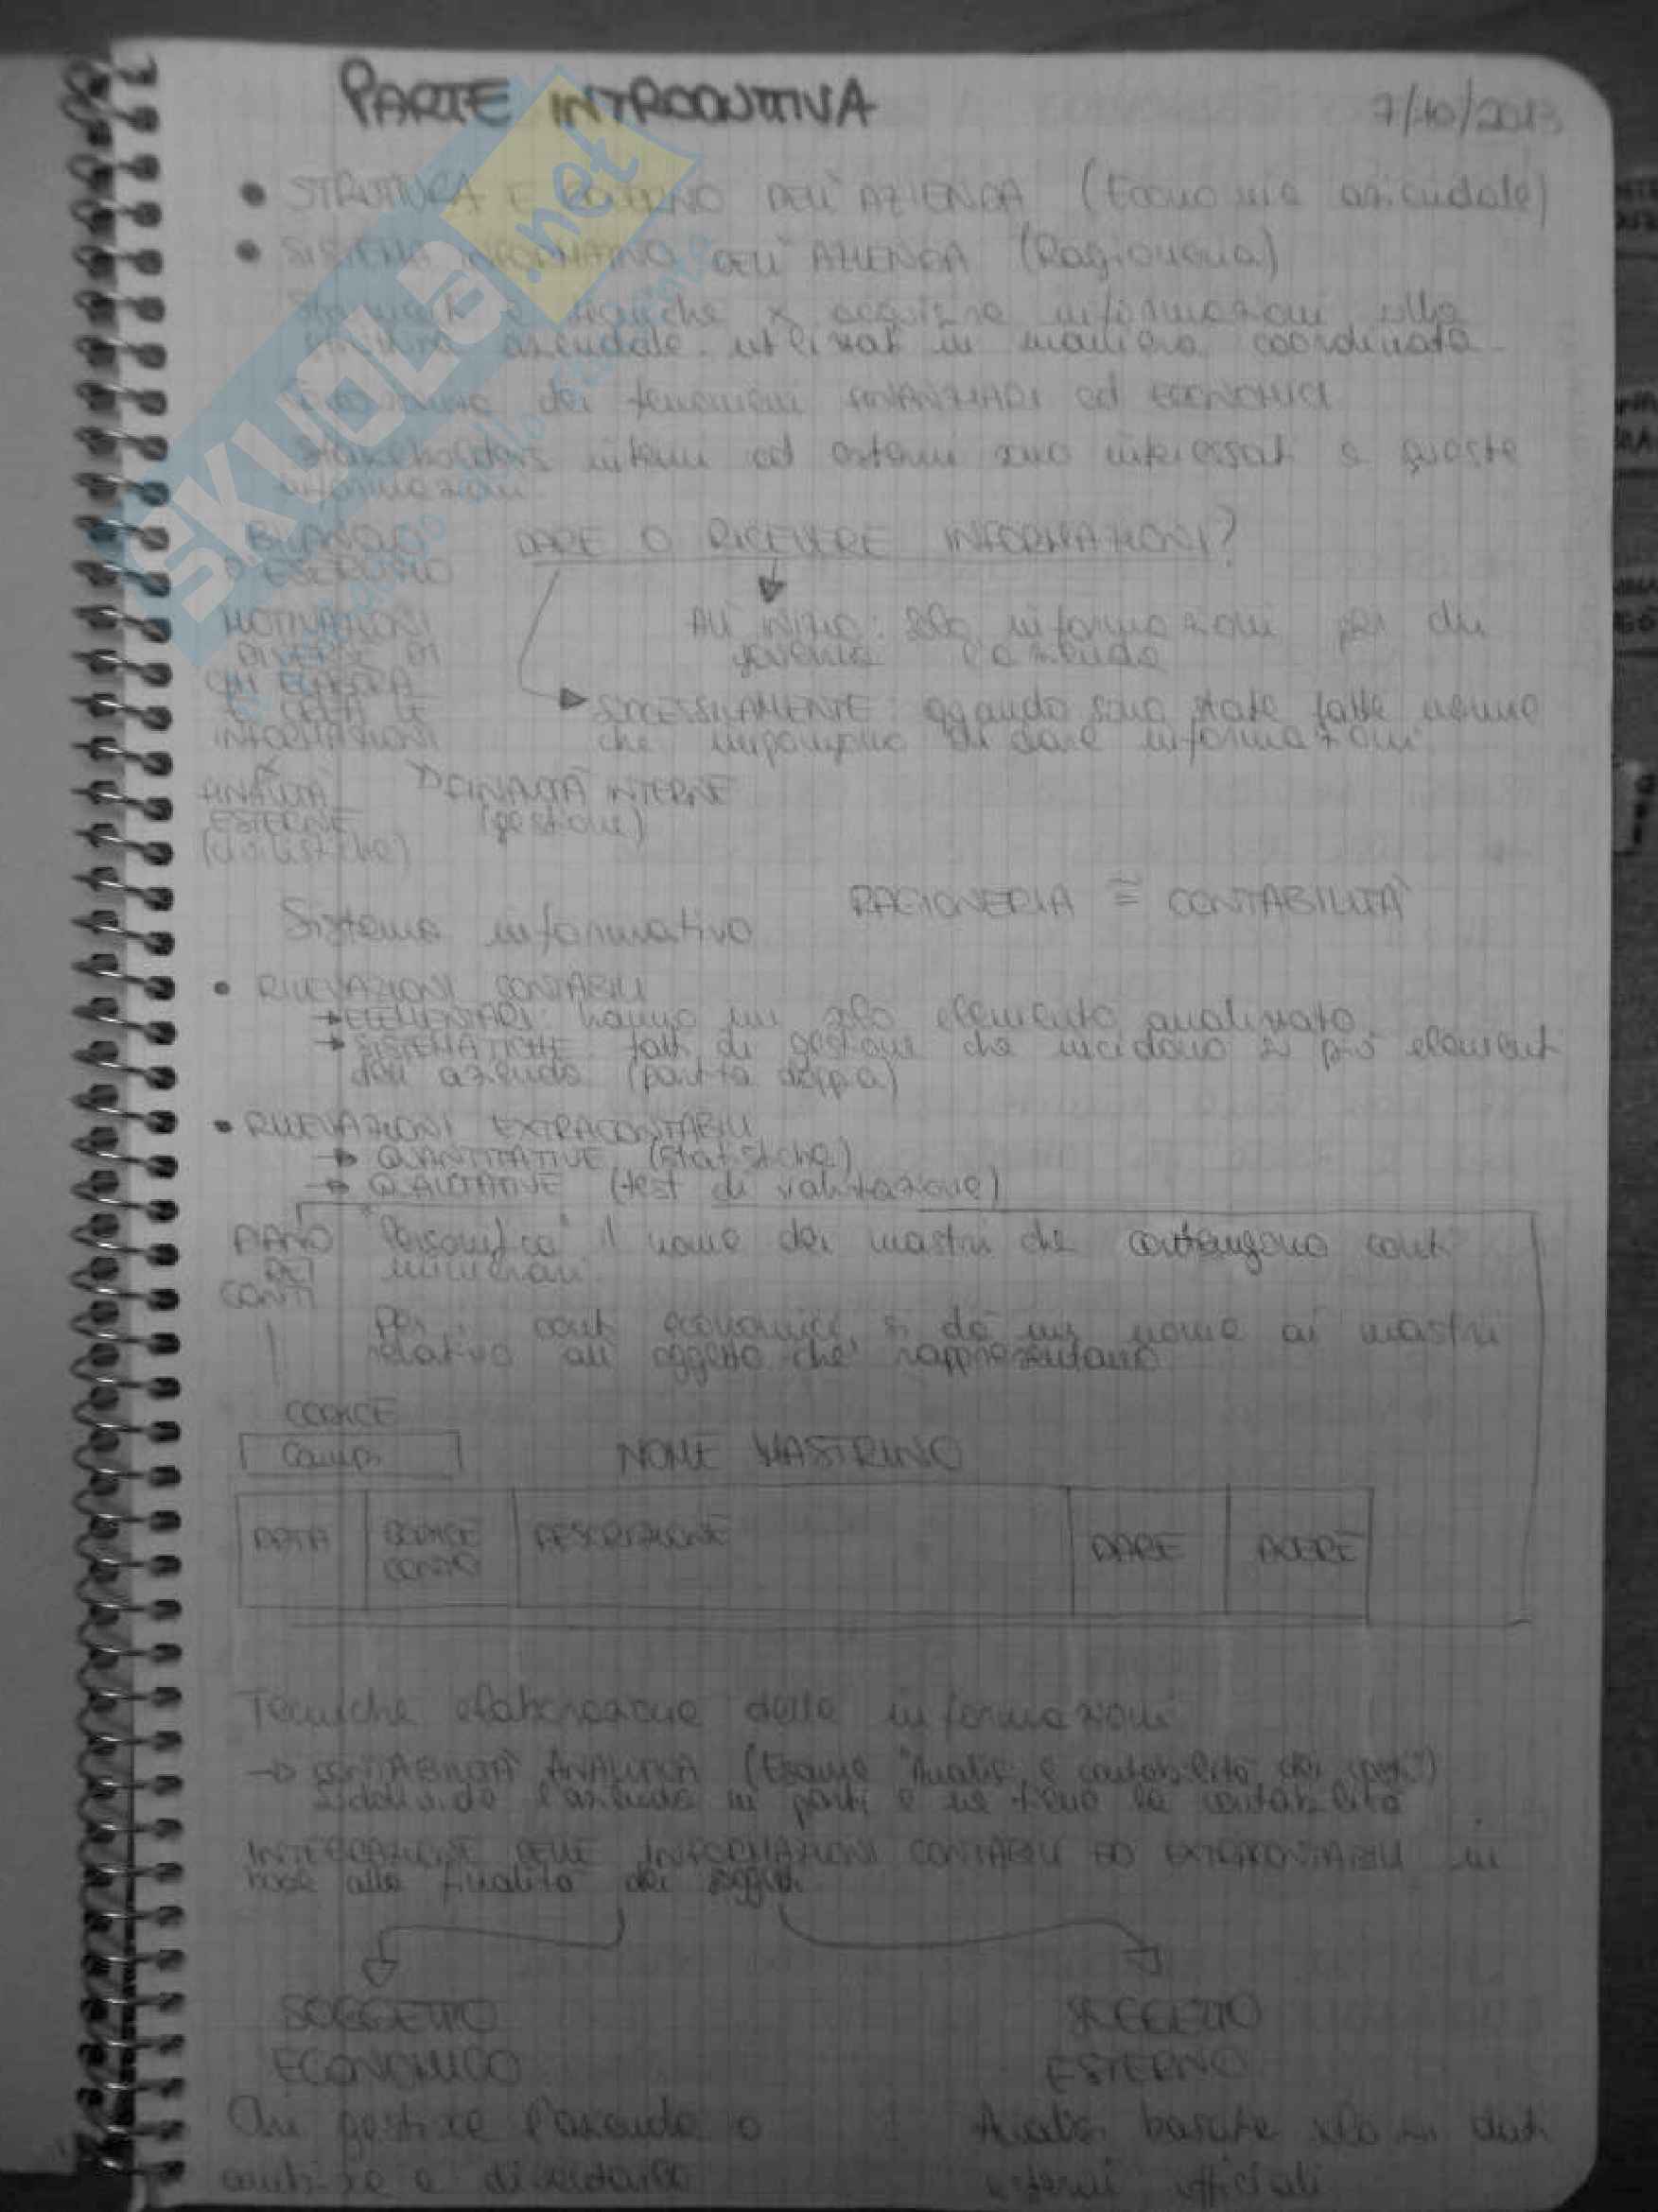 PARTE INTRODUTTIVA
7/10/2013
• STRUTTURA E GOVERNO DELL'AZIENDA (Economia aziendale)
• SISTEMA INFORMATIVO DELL'AZIENDA (Ragioneria)
e tecniche x acquisire informazioni sulla
aziendale utilizzati in maniera coordinata
dei fenomeni FINANZIARI ed ECONOMICI
Stakeholders interni ed esterni sono interessati a queste
informazioni.
BILANCIO
D'ESERCIZIO
DARE O RICEVERE INFORMAZIONI?
MOTIVAZIONI
DIVERSE DI
CHI ELABORA
E CREA LE
INFORMAZIONI
All'inizio: solo informazioni per chi
governa l'azienda
SUCCESSIVAMENTE: quando sono state fatte norme
che impongono di dare informazioni
FINALITÀ
ESTERNE
FINALITÀ INTERNE
(gestione)
RAGIONERIA ≅ CONTABILITÀ
Sistema informativo
• RILEVAZIONI CONTABILI
→ ELEMENTARI: hanno un solo elemento analizzato
→ SISTEMATICHE: fatti di gestione che incidono su più elementi
dell'azienda (partita doppia)
• RILEVAZIONI EXTRACONTABILI
→ QUANTITATIVE (statistiche)
→ QUALITATIVE (test di valutazione)
PIANO
DEI
CONTI
"Personifica" il nome dei mastri che contengono conti
numerari.
Per i conti economici si dà un nome ai mastri
relativo all'oggetto che rappresentano
CODICE
Campi
NOME MASTRINO
DATA
CODICE
CONTO
DESCRIZIONE
DARE
AVERE
Tecniche elaborazione delle informazioni
→ CONTABILITÀ ANALITICA (Esame "Analisi e contabilità dei costi")
suddivide l'azienda in parti e ne tiene la contabilità
INTEGRAZIONE DELLE INFORMAZIONI CONTABILI ED EXTRACONTABILI in
base alla finalità dei soggetti
SOGGETTO
ECONOMICO
SOGGETTO
ESTERNO
Chi gestisce l'azienda o
Analisi basate solo su dati
esterni ufficiali
SKUOLA.net